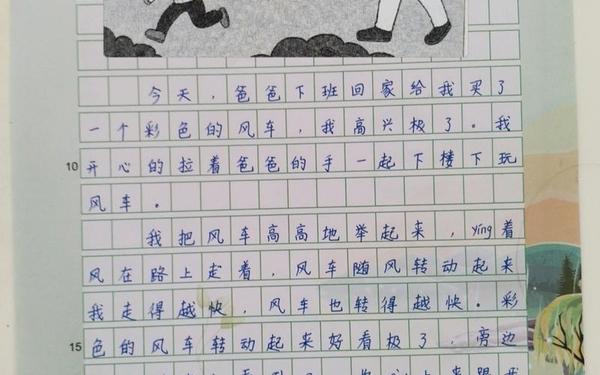 今天，爸爸下班回家给我买了
一个彩色的风车，我高兴极了。我
10 开心的拉着爸爸的手一起下楼下玩
风车。
我把风车高高地举起来，yíng着
风在路上走着，风车随风转动起来
我走得越快，风车也转得越快。彩
15 色的风车转动起来好看极了，旁边